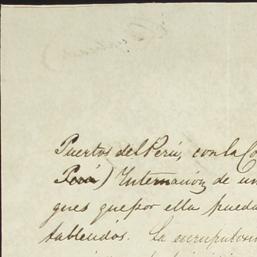 Puertos del Perú, con la Co
Perú) Internación de un
ques que por ella pueda
tablecidos. La escrupulosi